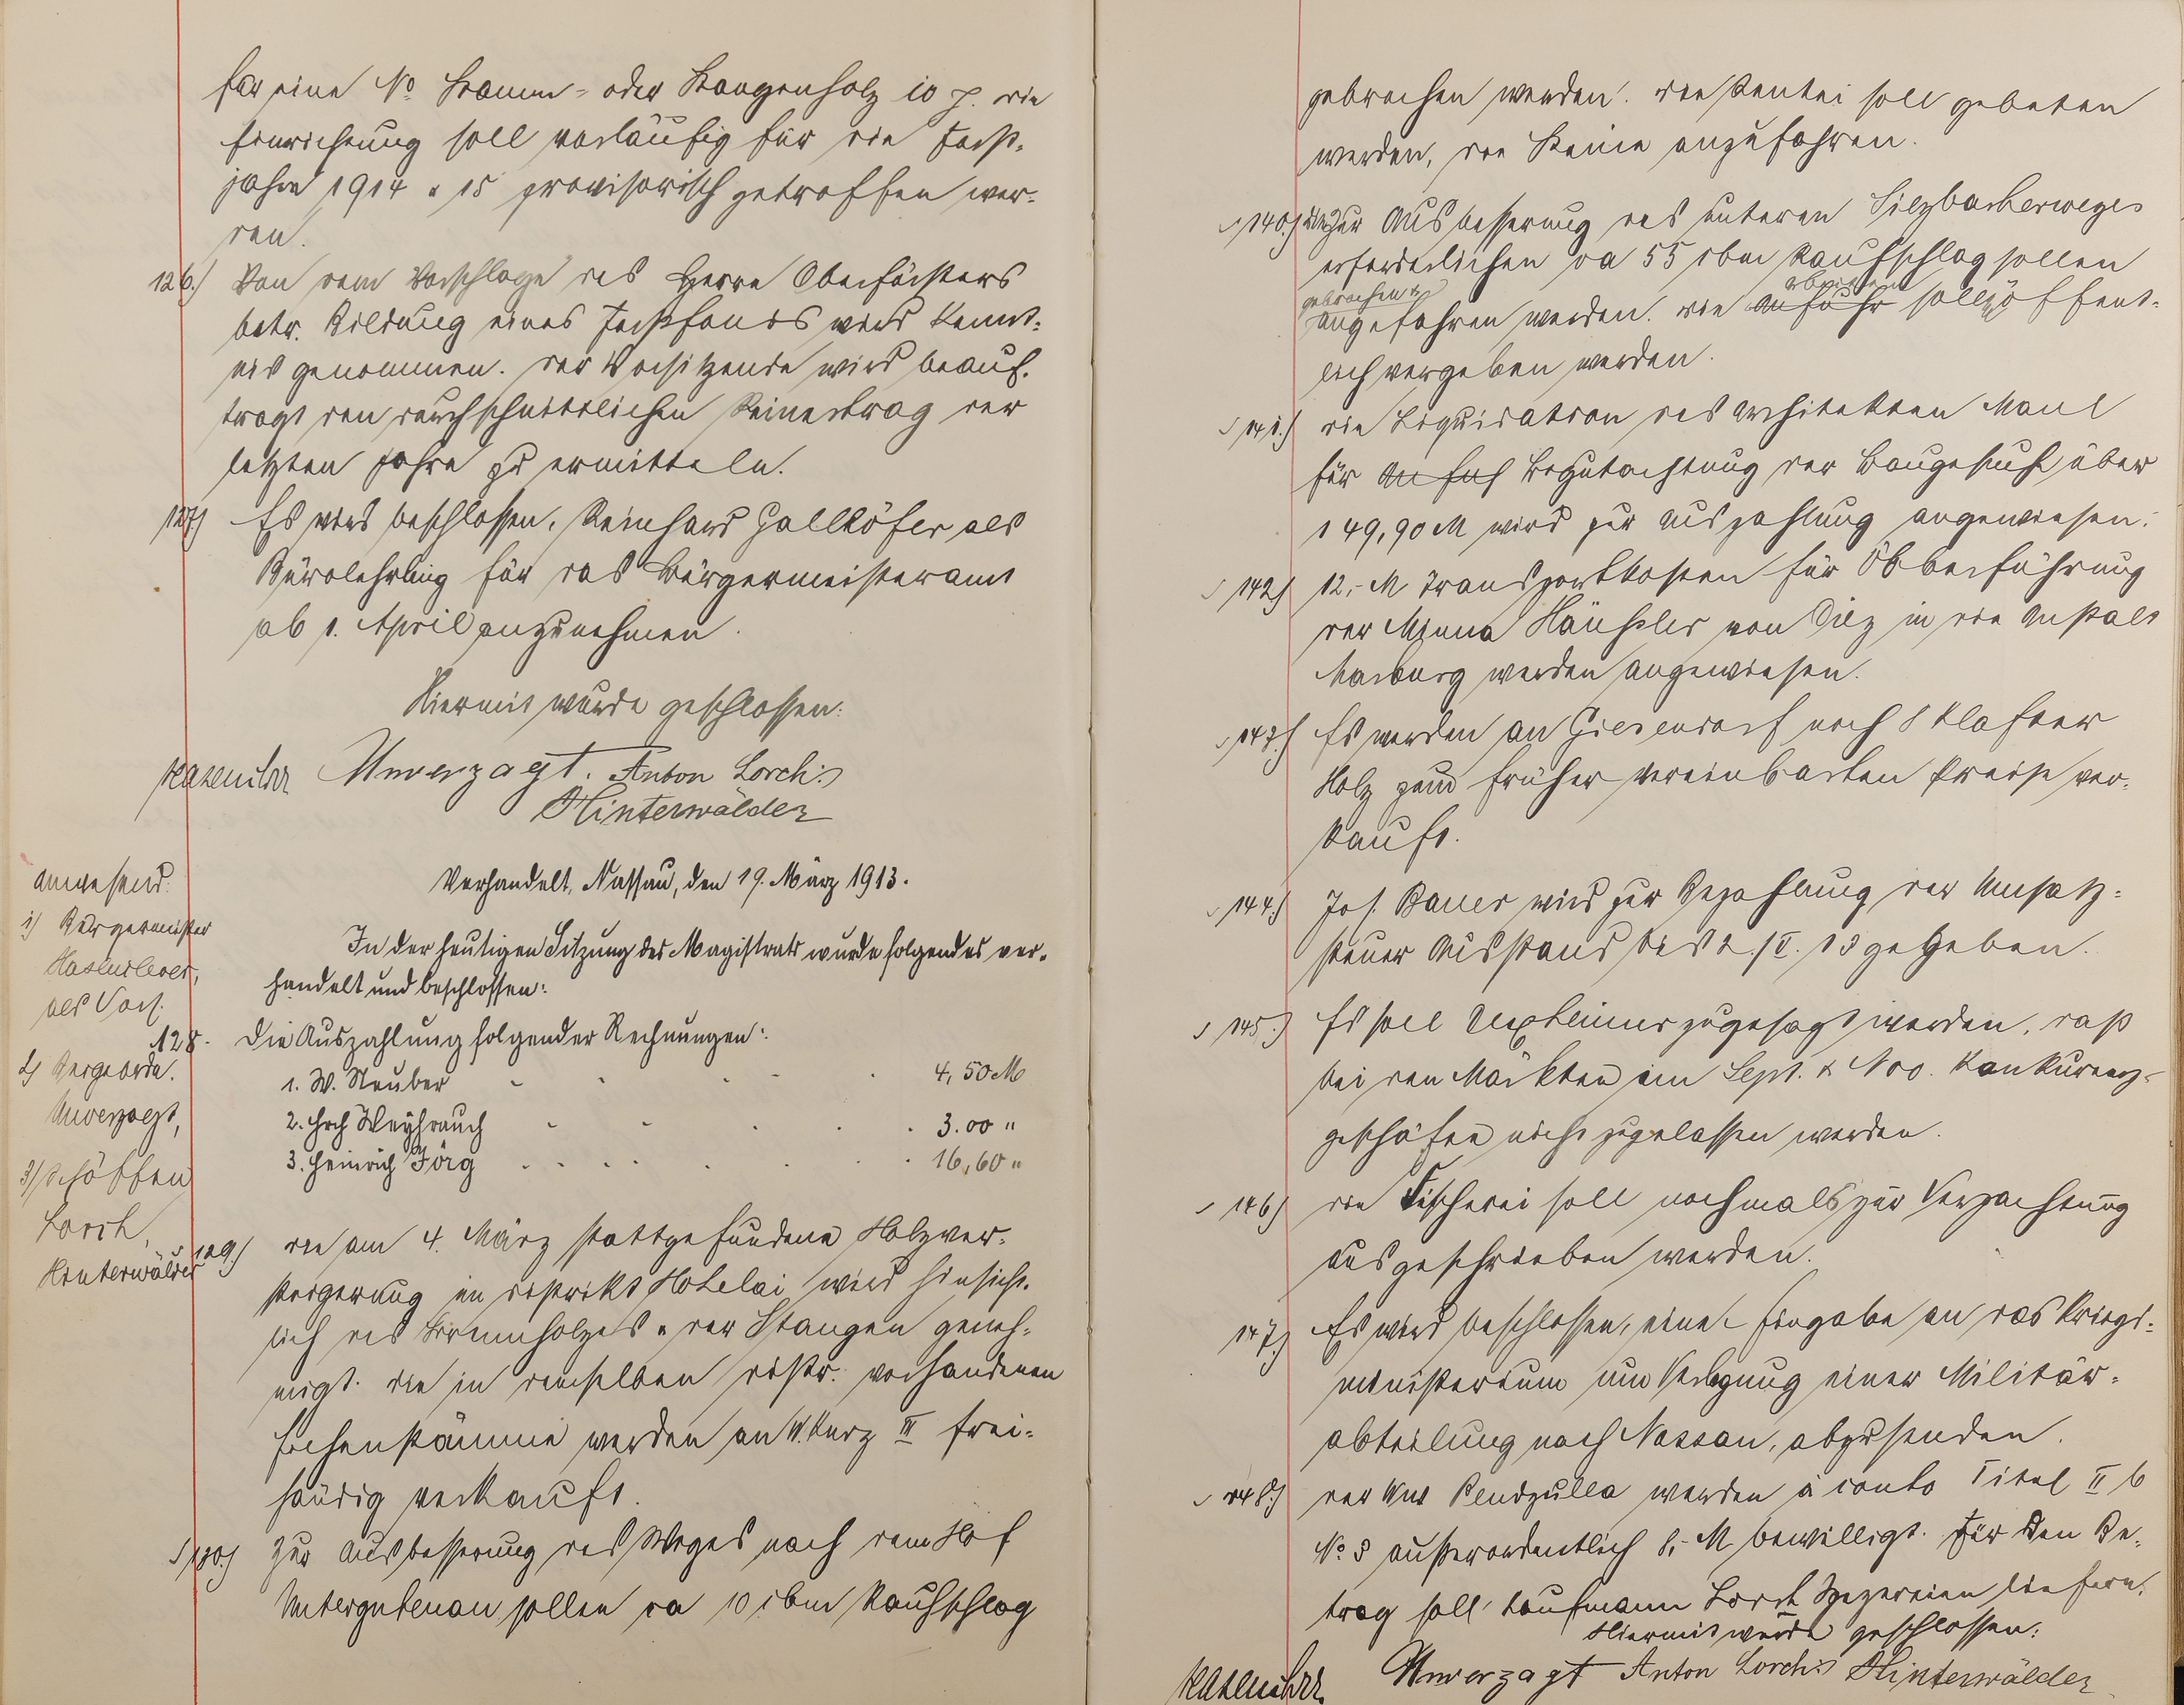 für eine No Stamm- oder Stangenholz 10 Pf. die
Einrichtung soll vorläufig für die Forst-
jahre 1914 u 15 provisorisch getroffen wer-
den.
126.) Von dem Vorschlage des Herrn Oberförsters
betr. Bildung eines Forstfonds wird Kennt-
nis genommen. der Vorsitzende wird beauf-
tragt den durchschnittlichen Reinertrag der
letzten Jahre zu ermitteln.
127) Es wird beschlossen, Reinhard Hallhöfer als
Bürolehrling für das Bürgermeisteramt
ab 1. April anzunehmen.
Hiermit wurde geschlossen:
Unverzagt. Anton Lorch
Hinterwälder
Verhandelt, Nassau, den 19. März 1913.
anwesend:
1) Bürgermeister
Hasenclever,
als Vors.
2) Beigeordn.
Unverzagt,
3) Schöffen
Lorch,
Hinterwälder
In der heutigen Sitzung des Magistrats wurde folgendes ver-
handelt und beschlossen:
128. Die Auszahlung folgender Rechnungen:
1. W. Neuber 4,50 M
2. Hrch Weyhrauch 3.00 "
3. Heinrich Jörg 16,60 "
129) die am 4. März stattgefundene Holzver-
steigerung im Distrikt Hohelai wird hinsicht-
lich des Brennholzes u der Stangen geneh-
migt. die in demselben Distr. vorhandenen
Eichenstämme werden an W. Kurz III frei-
händig verkauft.
130.) Zur Ausbesserung des Weges nach dem Hof
Untergutenau sollen ca 10 cbm Rauhschlag
gebrochen werden. die Rentei soll gebeten
werden, die Steine anzufahren.
140.) die zur Ausbesserung des unteren Silzbacherweges
erforderlichen ca 55 cbm Rauhschlag sollen
gebrochen u
angefahren werden. die Anfuhr arbeiten sollen öffent-
lich vergeben werden.
141.) die Liquidation des Architekten Maul
für Anfuh Begutachtung der Baugesuche über
149,90 M wird zur Auszahlung angewiesen.
142) 12,- M Transportkosten für Überführung
der Minna Häußler von Diez in die Anstalt
Marburg werden angewiesen.
143.) Es werden an Giesendorf noch 8 Klafter
Holz zum früher vereinbarten Preise ver-
kauft.
144.) Jos. Bauer wird zur Bezahlung der Umsatz-
steuer Ausstand bis 2./II. 13 gegeben.
145.) Es soll zugesagt werden, daß
bei den Märkten im Sept. & Nov. Konkurenz-
geschäfte nicht zugelassen werden.
146) die Fischerei soll nochmals zur Verpachtung
ausgeschrieben werden.
147.) Es wird beschlossen, eine Eingabe an das Kriegs-
ministerium um Verlegung einer Militär-
abteilung nach Nassau, abzusenden.
148.) der Ww Kendzulla werden à conto Titel II b
No 3 außerordentlich 8,- M bewilligt. Für den Be-
trag soll Kaufmann Lorch Spezereien liefern.
Hiermit wurde geschlossen:
Unverzagt Anton Lorch Hinterwälder